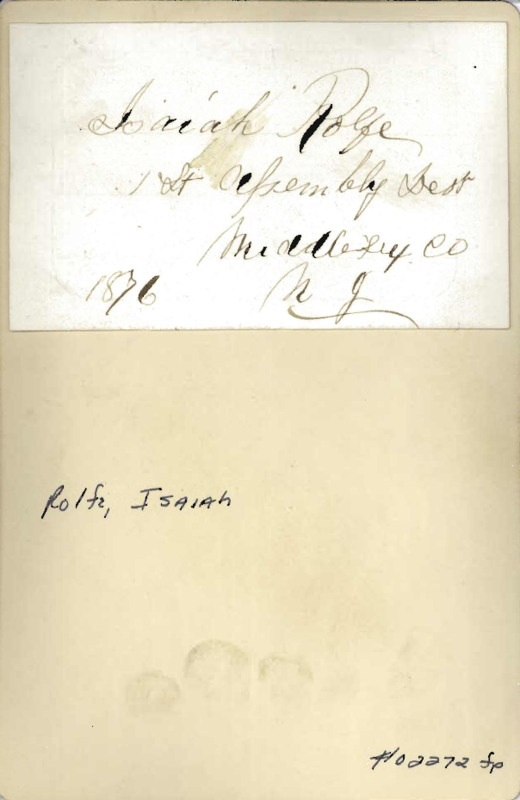 Isaiah Rolfe
1 St Assembly Dest
Middlesex Co
1876 N J
Rolfe, ISAIAH
#02272 fp